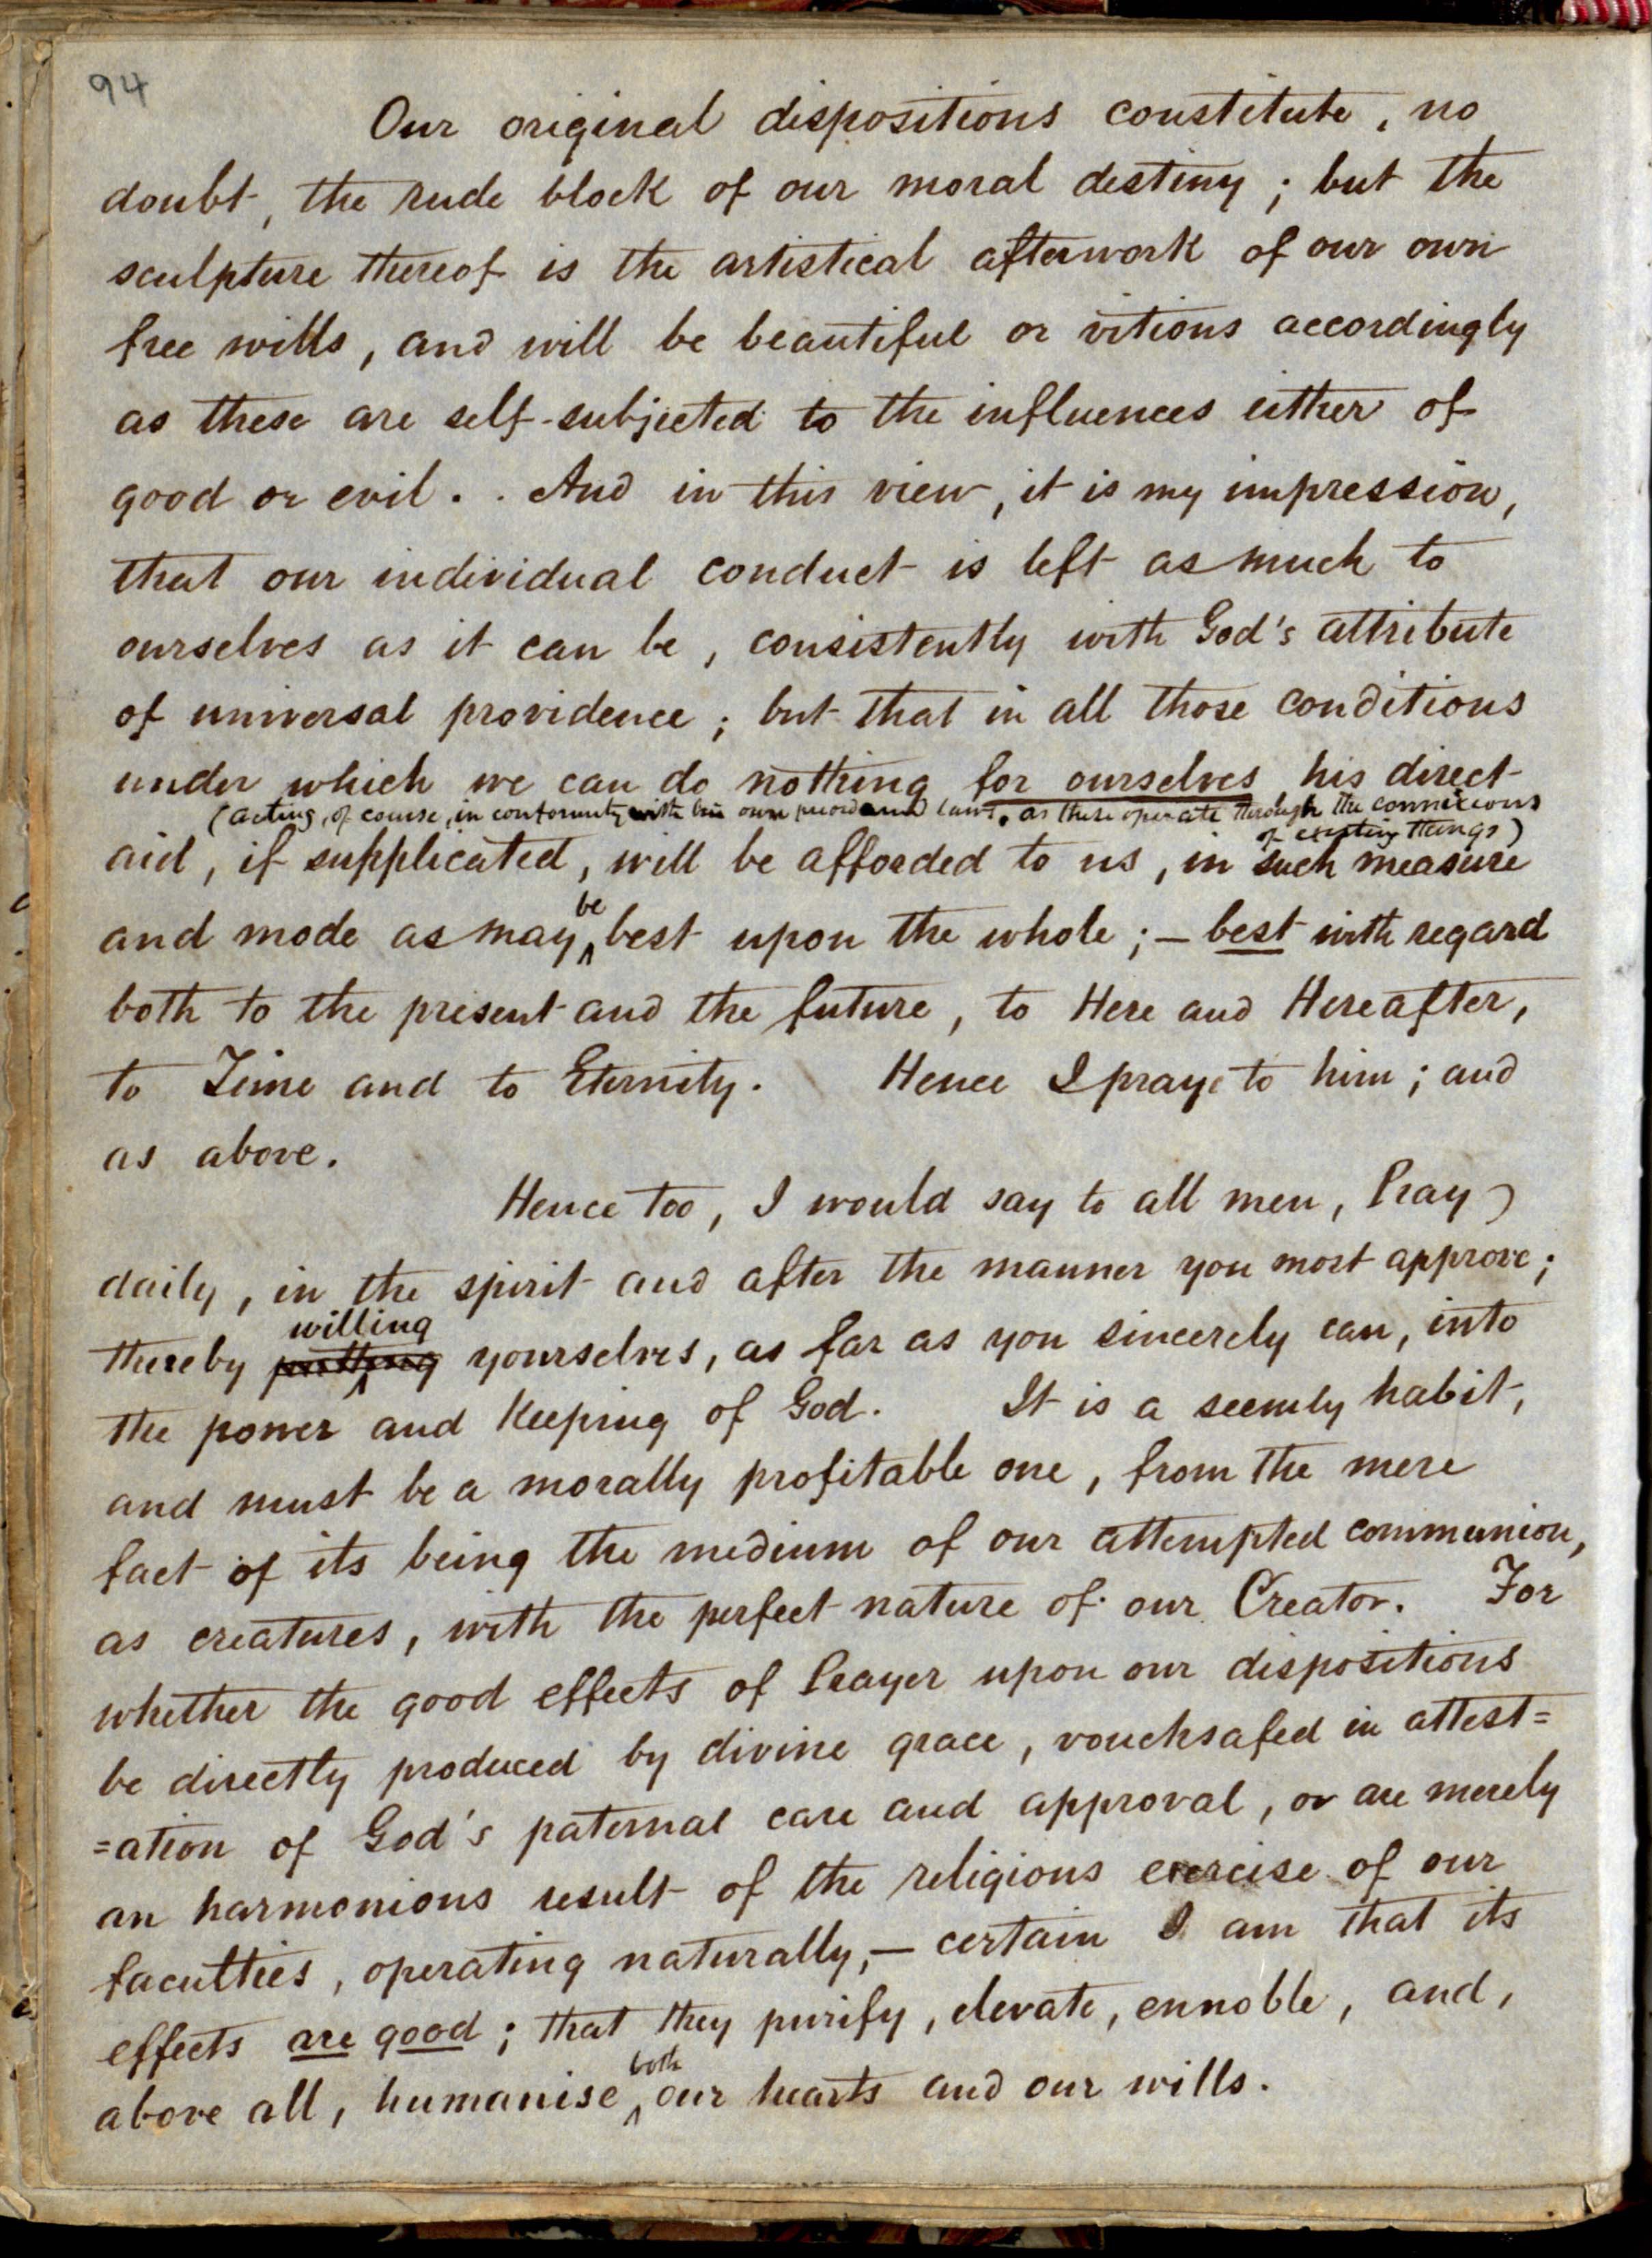 94
Our original dispositions constitute, no
doubt, the rude block of our moral destiny; but the
sculpture thereof is the artistical afterwork of our own
free wills, and will be beautiful or vitious accordingly
as these are self-subjected to the influences either of
good or evil. . And in this view, it is my impression,
that our individual conduct is left as much to
ourselves as it can be, consistently with God's attribute
of universal providence; but that in all those conditions
under which we can do nothing for ourselves, his direct
(acting, of course, in conformity with his own preordained laws, as these operate through the connexions
of existing things)
aid, if supplicated, will be afforded to us, in such measure
and mode as may be best upon the whole; – best with regard
both to the present and the future, to Here and Hereafter,
to Time and to Eternity. Hence I pray to him; and
as above.
Hence too, I would say to all men, Pray
daily, in the spirit and after the manner you most approve;
thereby putting willing yourselves, as far as you sincerely can, into
the power and keeping of God. It is a seemly habit,
and must be a morally profitable one, from the mere
fact of its being the medium of our attempted communion,
as creatures, with the perfect nature of our Creator. For
whether the good effects of Prayer upon our dispositions
be directly produced by divine grace, vouchsafed in attest=
=ation of God's paternal care and approval, or are merely
an harmonious result of the religious exercise of our
faculties, operating naturally, – certain I am that its
effects are good; that they purify, elevate, ennoble, and,
above all, humanise both our hearts and our wills.